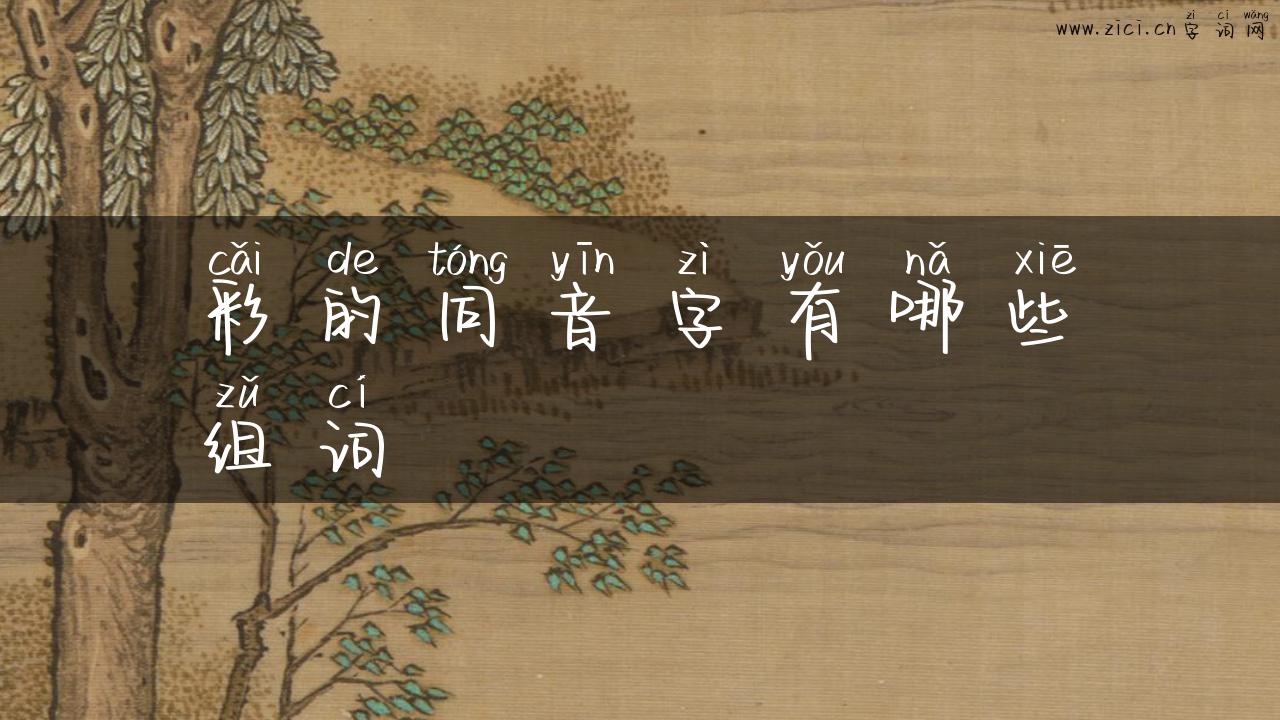 zì cí wǎng
www.zici.cn 字词网
cǎi de tóng yīn zì yǒu nǎ xiē
彩的同音字有哪些
zǔ cí
组词